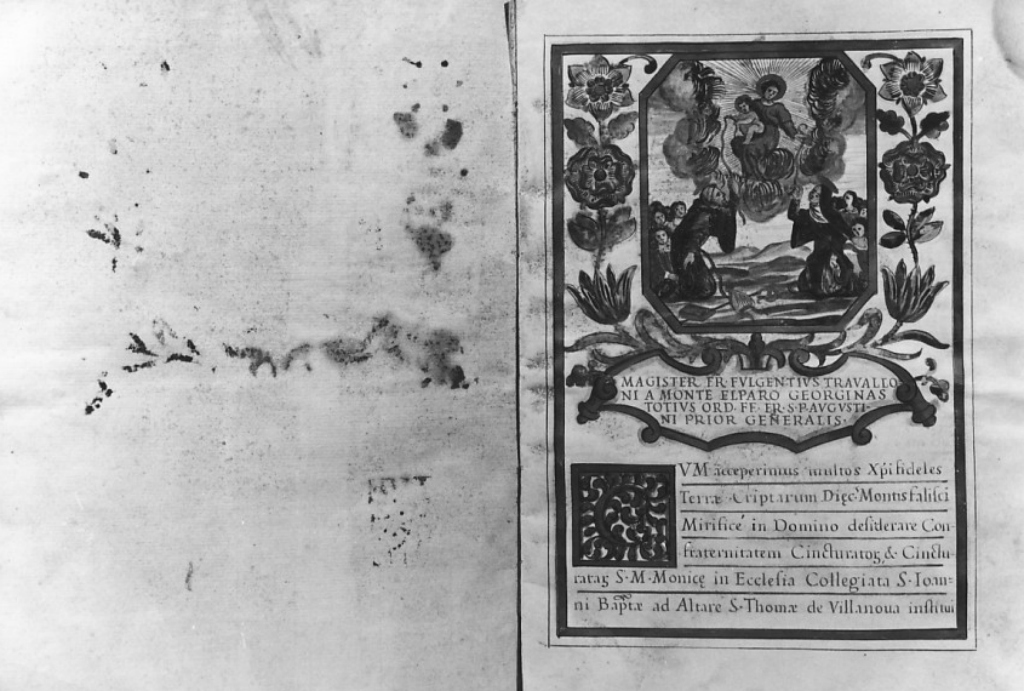 MAGISTER FR·FVLGENTIVS TRAVALLO
NI A MONTE ELPARO GEORGINAS
TOTIVS ORD·FF·ER·S·P·AVGVSTI-
NI PRIOR GENERALIS·
VM acceperimus multos Xp̄i fideles
Terræ Criptarum Diȩc· Montisfalisci
Mirificè in Domino desiderare Con-
fraternitatem Cincturatoꝝ & Cinctu-
rataꝝ S·M·Monicȩ in Ecclesia Collegiata S·Ioan-
ni Bap̄tæ ad Altare S·Thomæ de Villanoua institui